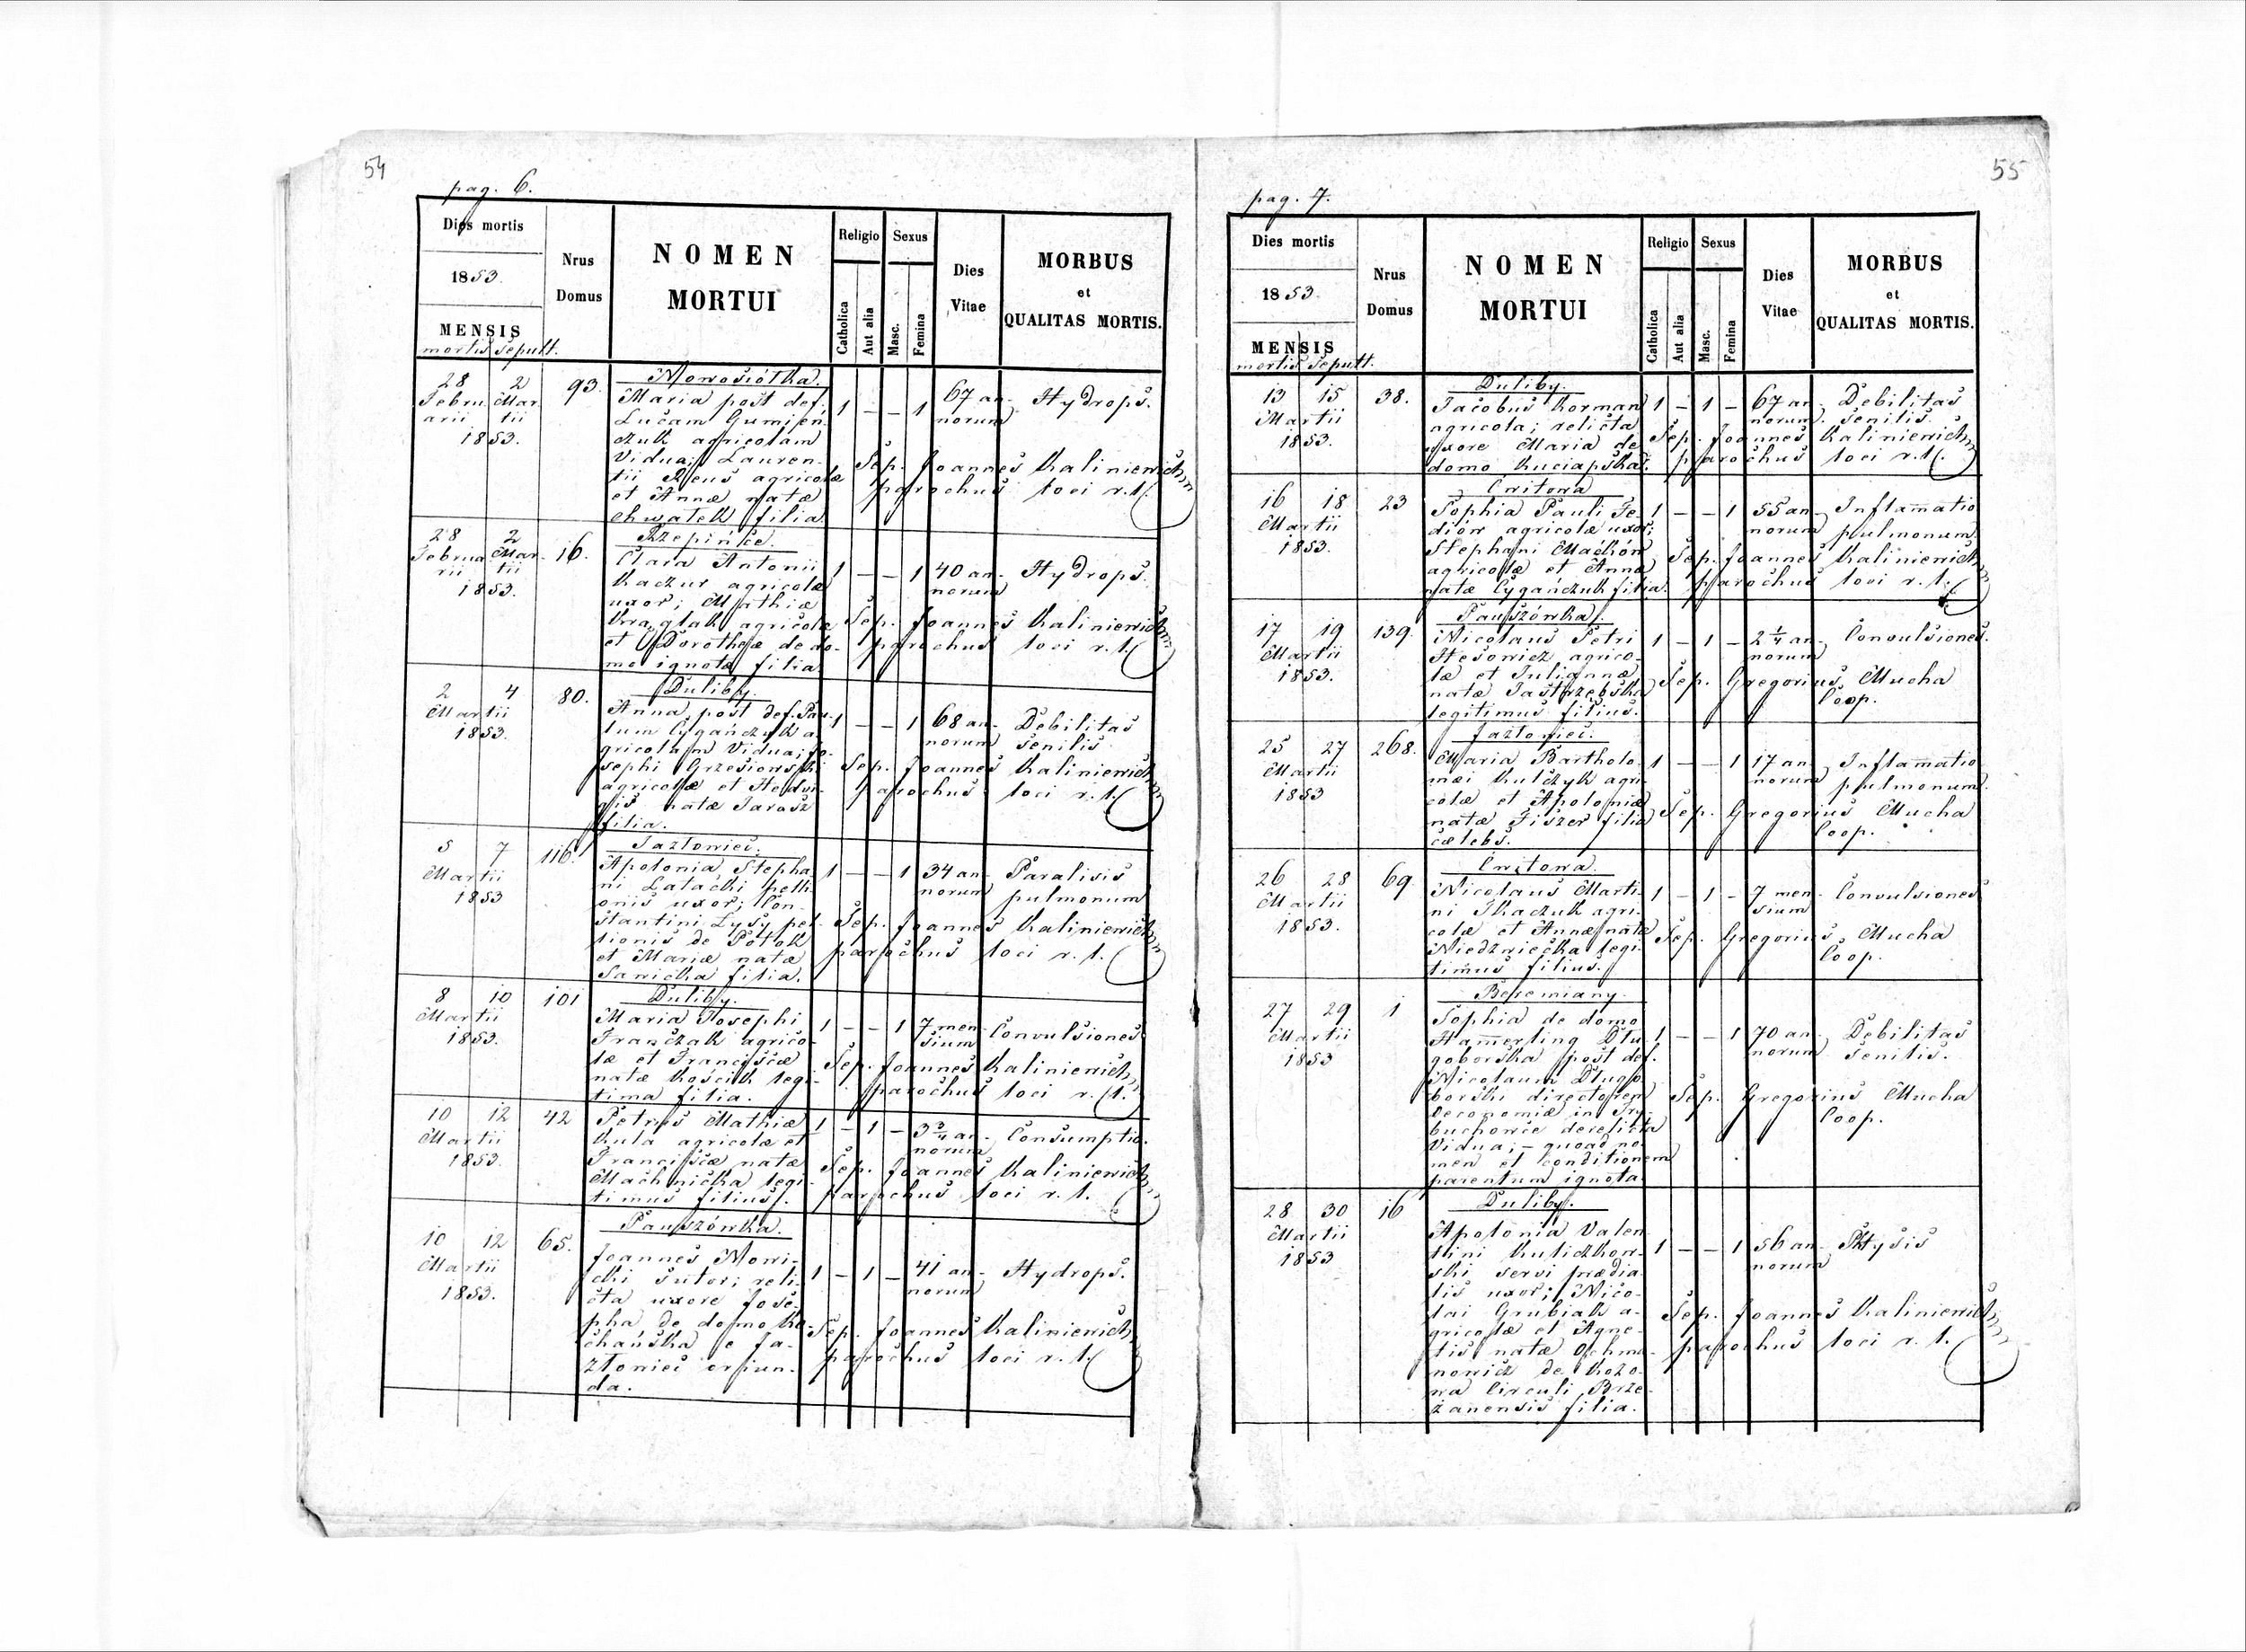 54
pag. 6.
Dies mortis
1853.
MENSIS
mortis sepult.
Nrus
Domus
NOMEN
MORTUI
Religio
Catholica
Aut alia
Sexus
Masc.
Femina
Dies
Vitae
MORBUS
et
QUALITAS MORTIS.
28 2
Febru Mar
arii tii
1853.
93.
Nowosiółka.
Maria post def.
Lucam Gumień
czuk agricolam
Vidua; Lauren-
tii Reus agricolæ
et Annæ natæ
Chwałek filia.
1 — — 1
67 an-
norum
Hydrops.
Sep. Joannes Kaliniewicz
parochus loci r. l.
28 2
Februa Mar-
rii tii
1853.
16.
Rzepińce.
Clara Antonii
Kaczur agricolæ
uxor; Mathiæ
agricolæ
et Dorotheæ de do-
mo ignotæ filia.
1 — — 1
40 an-
norum
Hydrops.
Sep. Joannes Kaliniewicz
parochus loci r. l.
2 4
Martii
1853.
80.
Duliby.
Anna post def. Pau-
lum Cygańczuk a-
gricolam Vidua; Jo-
sephi Grzesiowski
agricolæ et Hedwi-
gis natæ Jarosz
filia.
1 — — 1
68 an-
norum
Debilitas
senilis
Sep. Joannes Kaliniewicz
parochus loci r. l.
5 7
Martii
1853
116.
Jazłowiec.
Apolonia Stepha-
ni Łatacki pelli-
onis uxor; Con-
stantini Łysy pel-
lionis de Potok
et Mariæ natæ
Sawicka filia.
1 — — 1
34 an-
norum
Paralisis
pulmonum
Sep. Joannes Kaliniewicz
parochus loci r. l.
8 10
Martii
1853.
101
Duliby.
Maria Josephi
Franczak agrico-
læ et Franciscæ
natæ Kościk legi-
tima filia.
1 — — 1
7 men-
sium
Convulsiones
Sep. Joannes Kaliniewicz
parochus loci r. l.
10 12
Martii
1853.
42
Petrus Mathiæ
Kula agricolæ et
Franciscæ natæ
Machnicka legi-
timus filius.
1 — 1 —
3 3/4 an-
norum
Consumptio.
Sep. Joannes Kaliniewicz
parochus loci r. l.
10 12
Martii
1853.
65.
Pauszówka.
Joannes Nowi-
cki sutor; reli-
cta uxore Jose-
pha de domo Ko-
chańska e Ja-
złowiec oriun-
da.
1 — 1 —
41 an-
norum
Hydrops.
Sep. Joannes Kaliniewicz
parochus loci r. l.
55
pag. 7.
Dies mortis
1853.
MENSIS
mortis sepult.
Nrus
Domus
NOMEN
MORTUI
Religio
Catholica
Aut alia
Sexus
Masc.
Femina
Dies
Vitae
MORBUS
et
QUALITAS MORTIS.
13 15
Martii
1853.
38.
Duliby.
Jacobus Korman
agricola; relicta
uxore Maria de
domo Kuciapska.
1 — 1 —
67 an-
norum.
Debilitas
senilis.
Sep. Joannes Kaliniewicz
parochus loci r. l.
16 18
Martii
1853.
23
Cwitowa
Sophia Pauli Fe-
diów agricolæ uxor;
Stephani Machón
agricolæ et Annæ
natæ Cygańczuk filia.
1 — — 1
55 an-
norum
Inflam̅atio
pulmonum.
Sep. Joannes Kaliniewicz
parochus loci r. l.
17 19
Martii
1853.
139.
Pauszówka.
Nicolaus Petri
Hesowicz agrico-
læ et Juliannæ
natæ Jastrzębska
legitimus filius.
1 — 1 —
2 1/4 an-
norum
Convulsiones.
Sep. Gregorius Mucha
Coop.
25 27
Martii
1853
268.
Jazłowiec.
Maria Bartholo-
mæi Kulczyk agri-
colæ et Apoloniæ
natæ Fiszer filia
cælebs.
1 — — 1
17 an-
norum
Inflam̅atio
pulmonum.
Sep. Gregorius Mucha
Coop.
26 28
Martii
1853.
69.
Cwitowa.
Nicolaus Marti-
ni Tkaczuk agri-
colæ et Annæ natæ
Niedzwiecka legi-
timus filius.
1 — 1 —
7 men-
sium
Convulsiones
Sep. Gregorius Mucha
Coop.
27 29
Martii
1853
1
Beremiany.
Sophia de domo
Ham̅erling Dłu-
goborska post def.
Nicolaum Długo-
borski directorem
oeconomiæ in Try-
buchowce derelicta
Vidua; — quoad no-
men et conditionem
parentum ignota.
1 — — 1
70 an-
norum
Debilitas
senilis.
Sep. Gregorius Mucha
Coop.
28 30
Martii
1853
16
Duliby.
Apolonia Valen-
tini Kuliczkow-
ski servi prædia-
lis uxor; Nico-
lai Grubiak a-
gricolæ et Agne-
tis natæ Ochma-
nowicz de Kozo-
wa Circuli Brze-
żanensis filia.
1 — — 1
56 an-
norum
Phtysis
Sep. Joannes Kaliniewicz
parochus loci r. l.